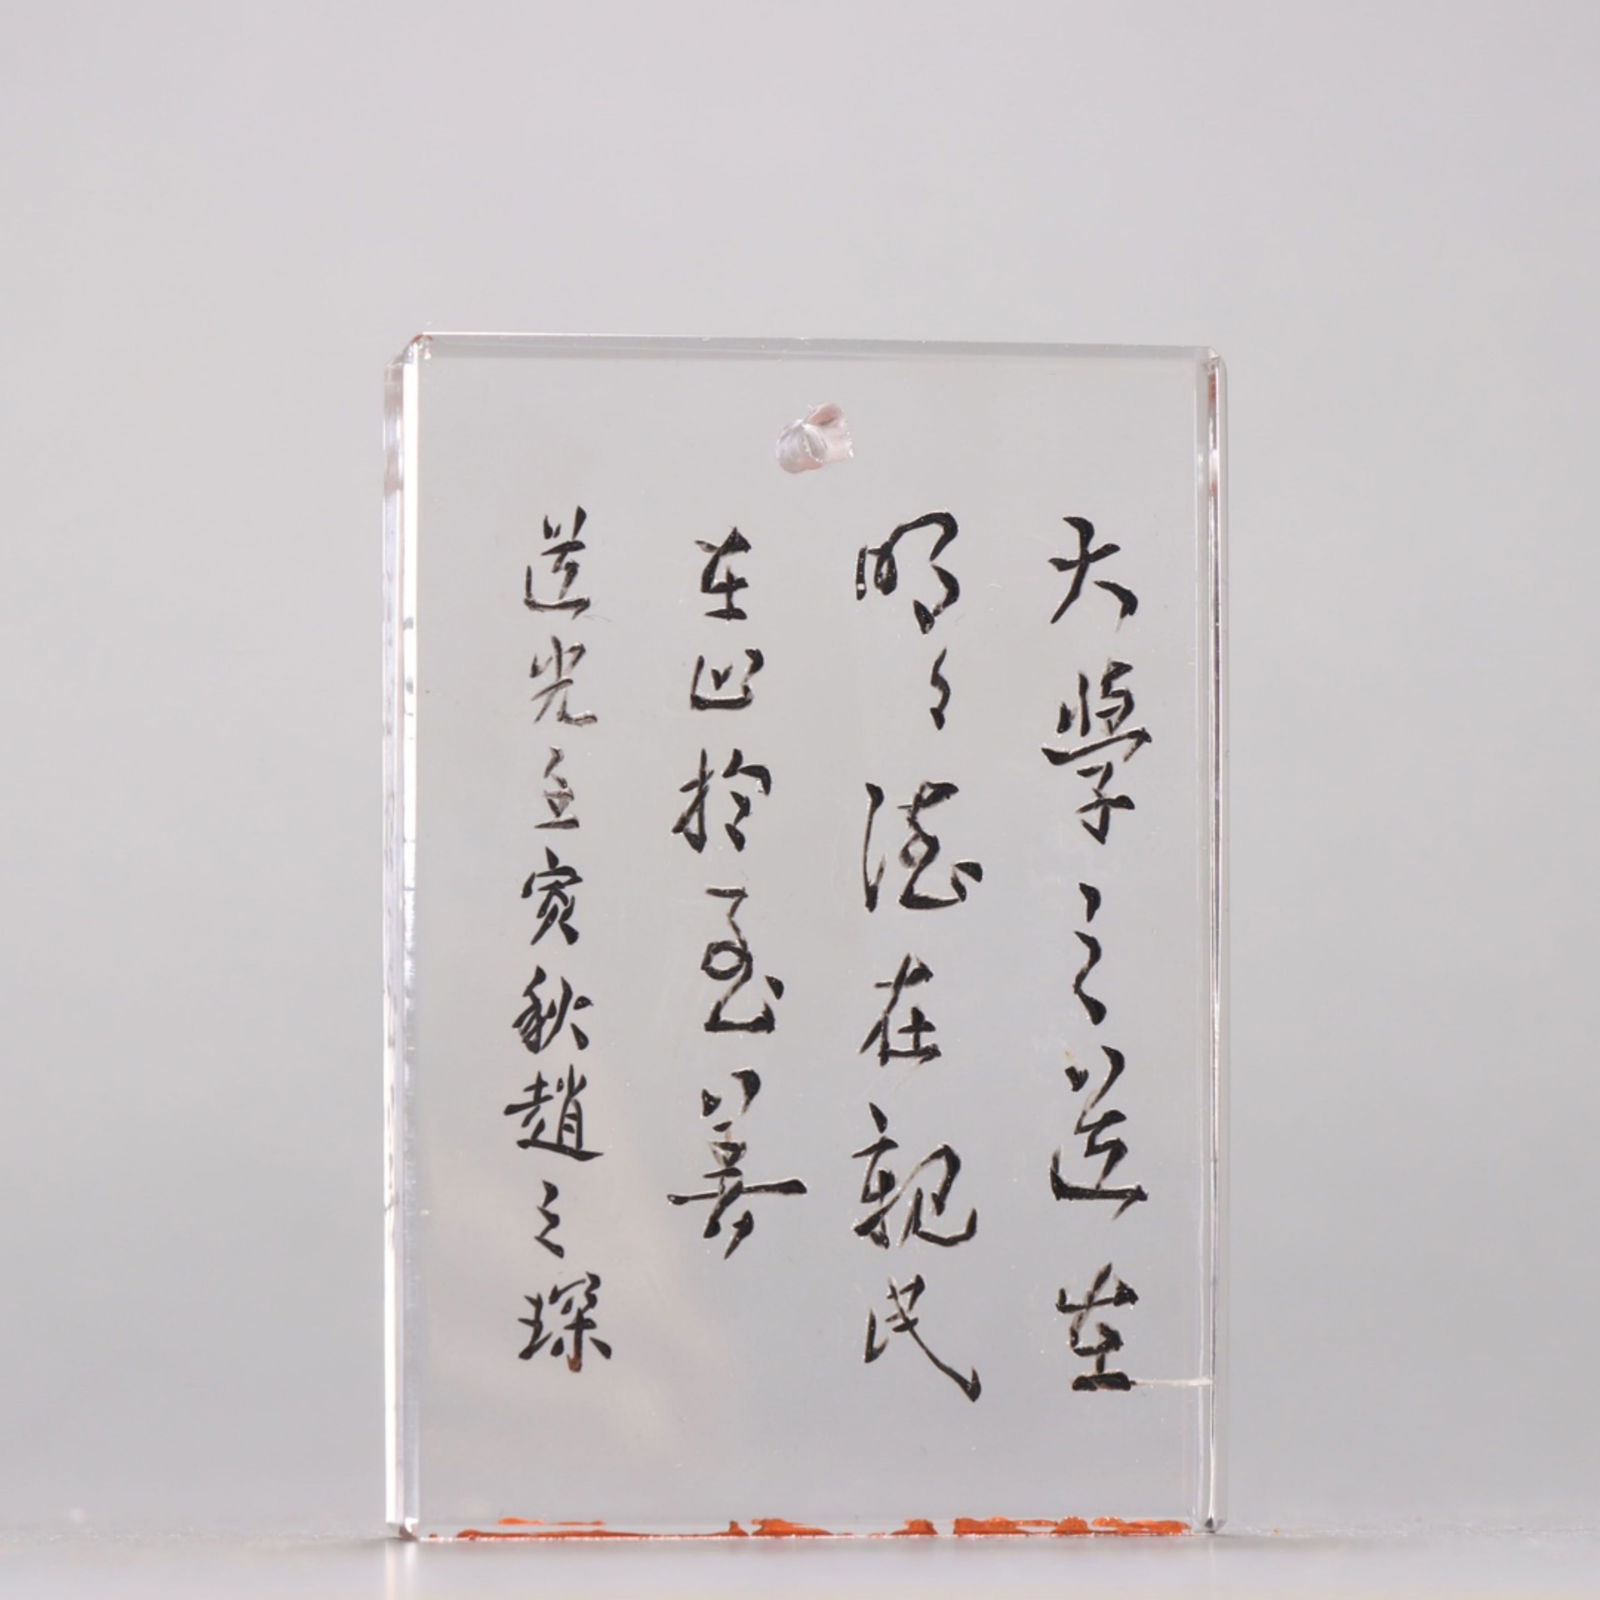 大學之道在
明々德在親民
在止於至善
道光壬寅秋趙之琛